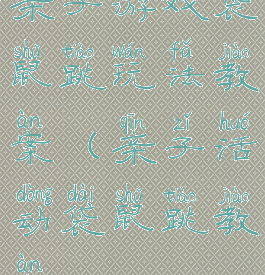 亲子游戏袋
shǔ tiào wán fǎ jiào
鼠跳玩法教
àn qīn zǐ huó
案（亲子活
dòng dài shǔ tiào jiào
动袋鼠跳教
àn